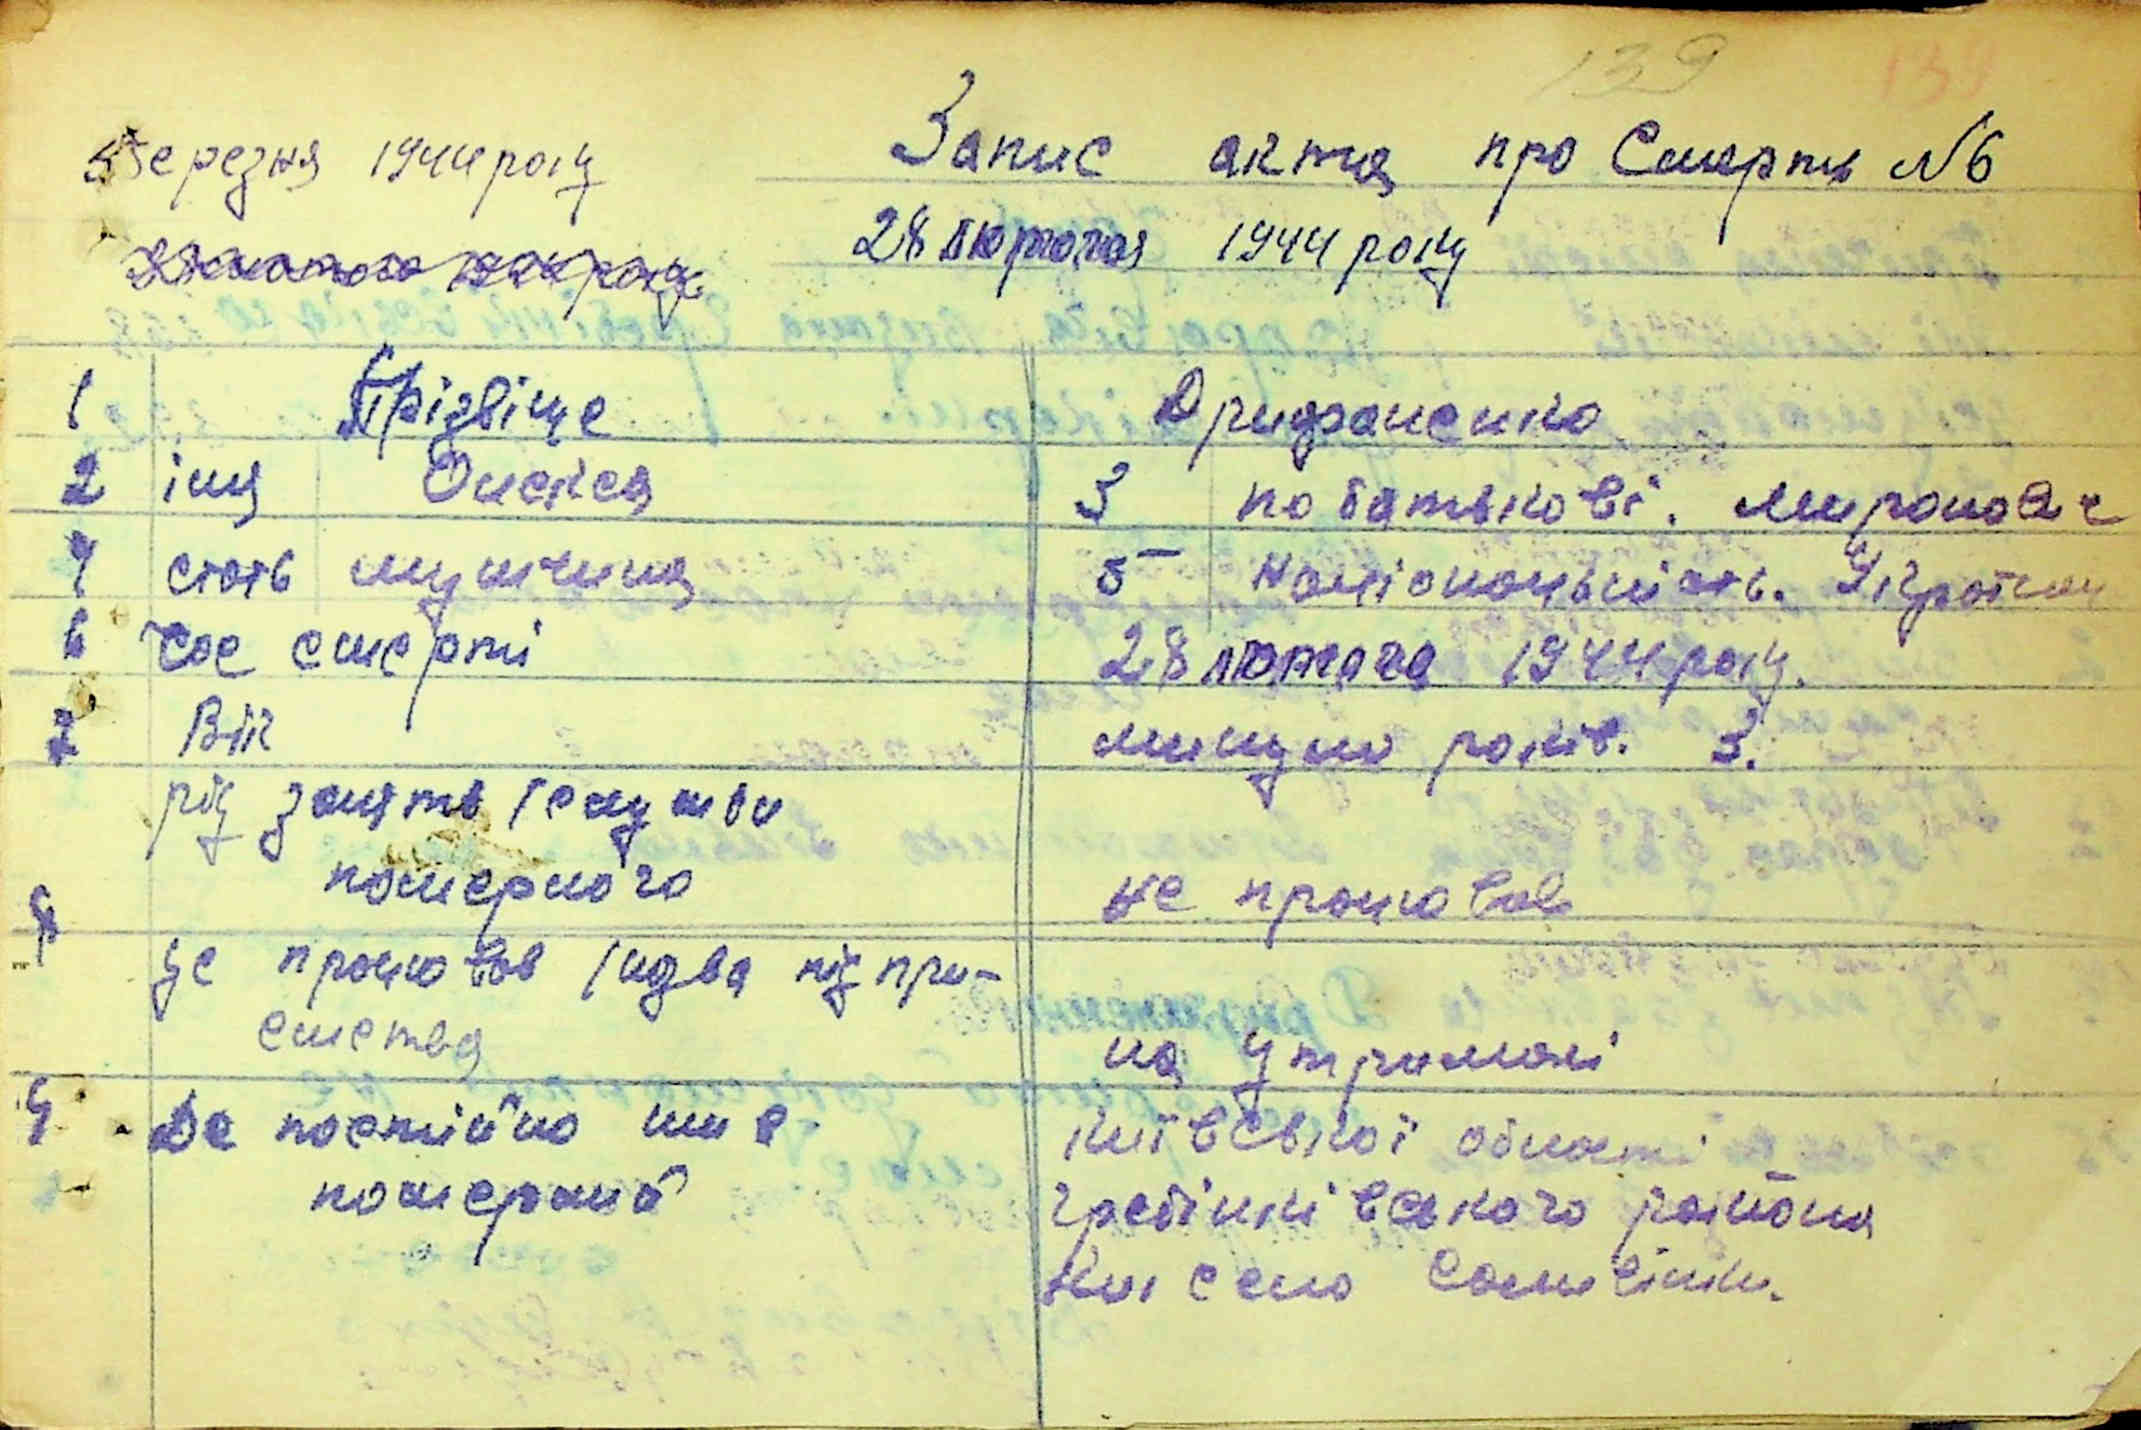 139 139
Березня 1944 року
Запис акта про Смерть №6
28 лютого 1944 року
1 Прізвіще Дрифаненко
2 імя Олексей 3 по батькові. Миронович
4 стать мужчина 5 Національність. Украінец
6 Час смерті 28 лютого 1944 року.
7 Вік минуло років. 3.
рід занять / служби
помершого не працював
8 де працював / назва підпри-
ємства на утримані
9 Де постійно жив Київської області
померший Гребінківського района
село Саливінки.